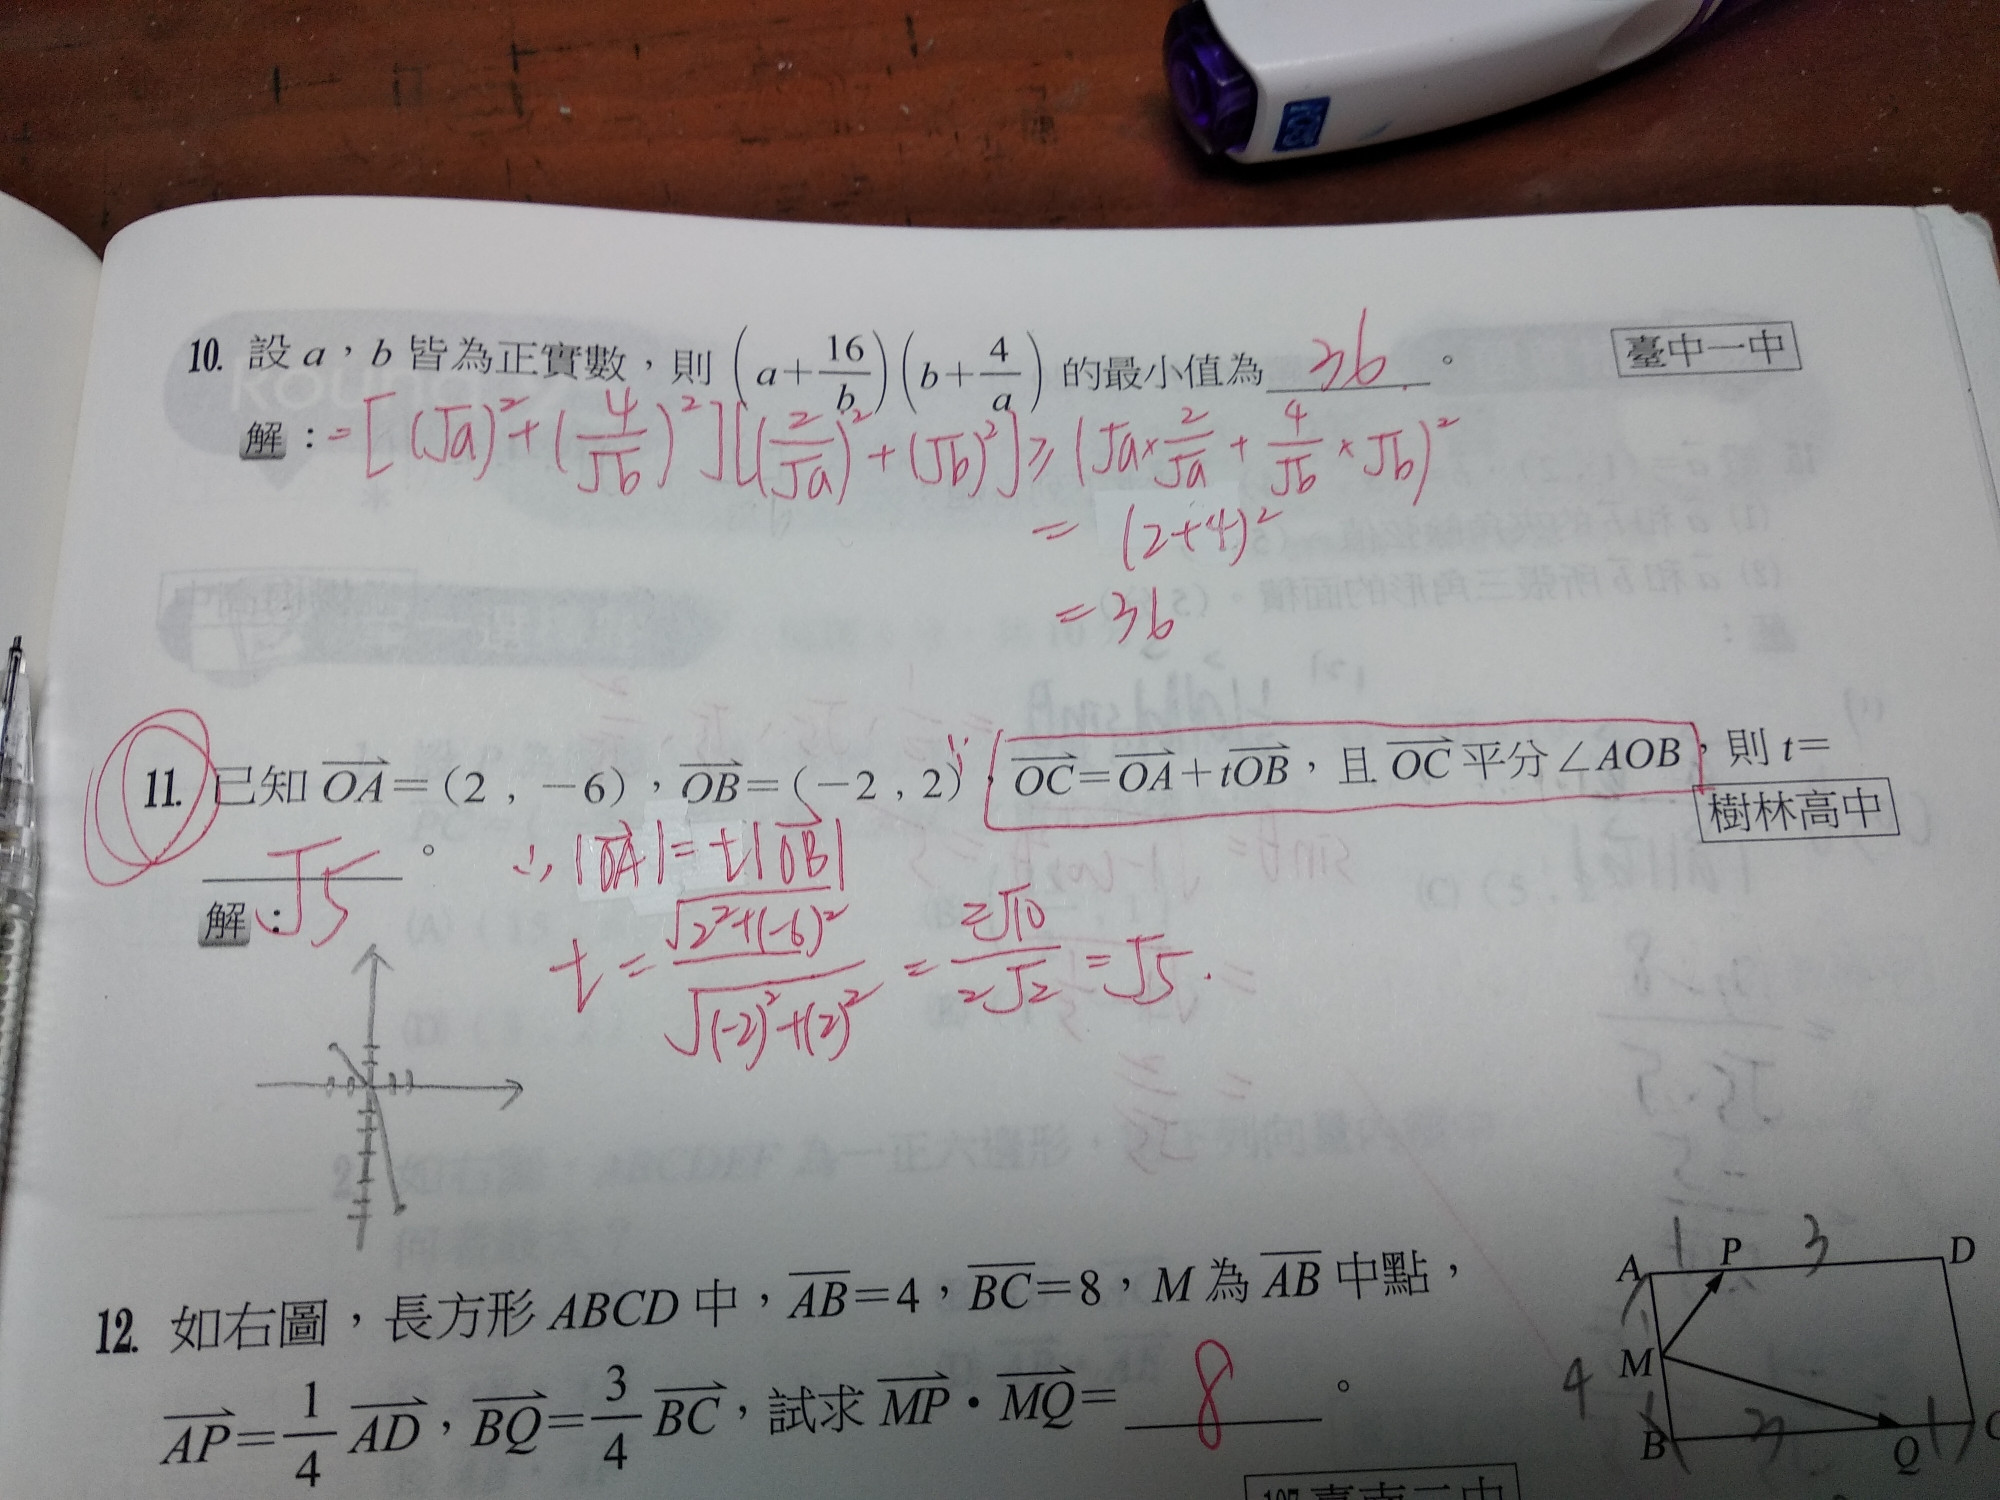 10. 設 a，b 皆為正實數，則 (a+16/b)(b+4/a) 的最小值為 36 。 臺中一中
解：= [(√a)²+(4/√b)²][(2/√a)²+(√b)²] ≥ (√a×2/√a + 4/√b×√b)²
= (2+4)²
= 36
11. 已知 OA→=(2 , −6)，OB→=(−2 , 2)，OC→=OA→+tOB→，且 OC→ 平分∠AOB，則 t=
√5 。 樹林高中
∴ |OA→| = t|OB→|
解：
t = √(2²+(-6)²) / √((-2)²+(2)²) = 2√10 / 2√2 = √5.
12. 如右圖，長方形 ABCD 中，AB=4，BC=8，M 為 AB 中點，
AP→=1/4 AD→，BQ→=3/4 BC→，試求 MP→・MQ→= 8 。
A 1 P 3 D
M
4
B 3 Q 1 C